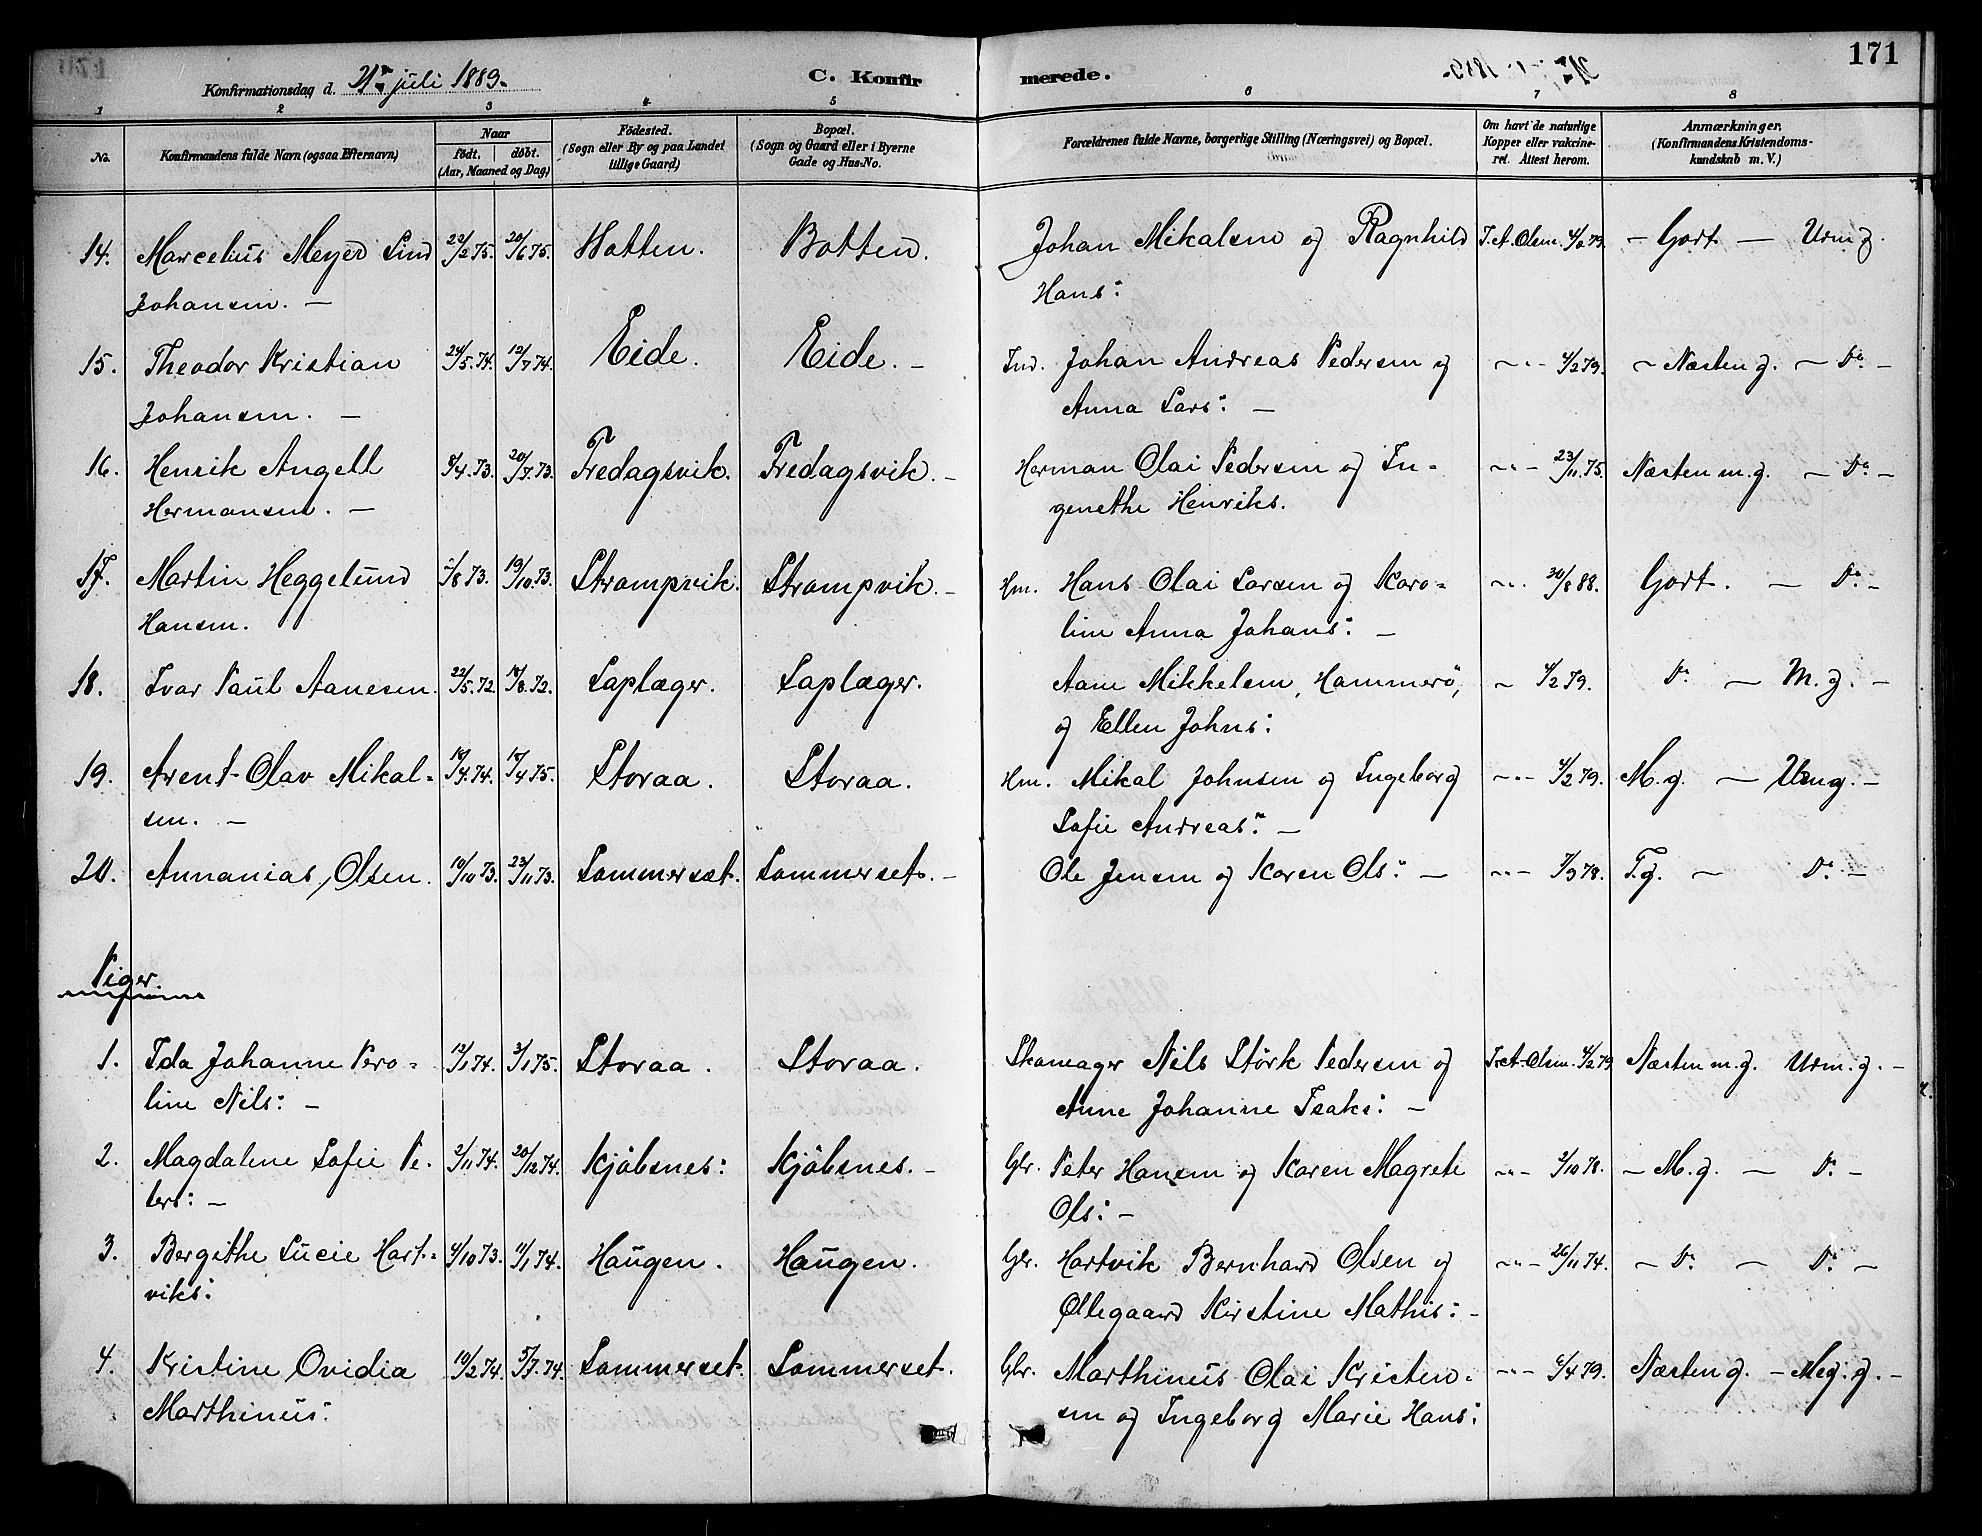 171
Konfirmationsdag d. 21de juli 1889. C. Konfir merede.
1 2 3 4 5 6 7 8
No. Konfirmandens fulde Navn (ogsaa Efternavn) Naar født. døbt. (Aar, Maaned og Dag) Fødested. (Sogn eller By og paa Landet tillige Gaard) Bopæl. (Sogn og Gaard eller i Byerne Gade og Hus-No. Forældrenes fulde Navne, borgerlige Stilling (Næringsvei) og Bopæl. Om havt de naturlige Kopper eller vakcineret. Attest herom. Anmærkninger. (Konfirmandens Kristendomskundskab m. V.)
14. Marcelius Meyer Lind 22/2 75. 20/6 75. Botten. Botten. Johan Mikalsen og Ragnhild T.A. Olsen. 4/2 79. – Godt – Urm g.
Johansen. – Hans:
15. Theodor Kristian 24/5. 74. 12/7 74. Eide. Eide. – Ind. Johan Andreas Pedersen og –"– 4/2 79. – Næsten g. – Do. –
Johansen. – Anna Lars: –
16. Henrik Angell 8/4. 73. 20/7. 73. Fredagsvik. Fredagsvik. – Herman Olai Pedersen og In- –"– 23/11. 75. Næsten m. g. – Do. –
Hermansen. – genethe Henriks.
17. Martin Heggelund /8 73. 19/10. 73. Strompvik. Strompvik. – Hm. Hans Olai Larsen og Karo- –"– 30/8 88. Godt. – Do. –
Hansen. line Anna Johans: –
18. Ivar Paul Aanesen. 22/5. 72. 18/8. 72. Laplæger. Laplæger. Aane Mikkelsen, Hammerö, – 4/2 79. Do. – M. g. –
og Ellen Johns:
19. Arent Olav Mikal- 19/4. 74. 18/4 75. Storaa. Storaa. Hm. Mikal Johnsen og Ingeborg –"– 4/2 79. M. g. – Urm g. –
sen. – Sofie Andreas: –
20. Annanias Olsen. 10/10 73. 23/11 73. Sommerset. Sommerset. – Ole Jensen og Karen Ols: – –"– 7/3 78. T. g. – Do. –
Piger.
1. Ida Johanne Pero- 12/1 74. 3/1 75. Storaa. Storaa. Skomager Nils Störk Pedersen og T.A. Olsen. 4/2 79 Næsten m. g. Urm. g. –
line Nils: – Anne Johanne Isaks: –
2. Magdalene Sofie Pe- 2/11 74. 20/12 74. Kjöbsnes: Kjöbsnes. – Gbr. Peter Hansen og Karen Magrete –"– 3/10 78. – M. g. – Do. –
ters: – Ols: –
3. Bergithe Lucie Hart- 4/10 73. 11/1 74. Haugen. Haugen. Gbr. Hartvik Bernhard Olsen og –"– 26/11 74. – Do. – Do. –
viks: Ollegaard Kirstine Mathis: –
4. Kristine Ovidia 10/2 74. 5/7. 74. Sommerset. Sommerset. Gbr. Marthinus Olai Kristen- –"– 6/4 79. Næsten g. – Meg. g. –
Marthinus: sen og Ingeborg Marie Hans: